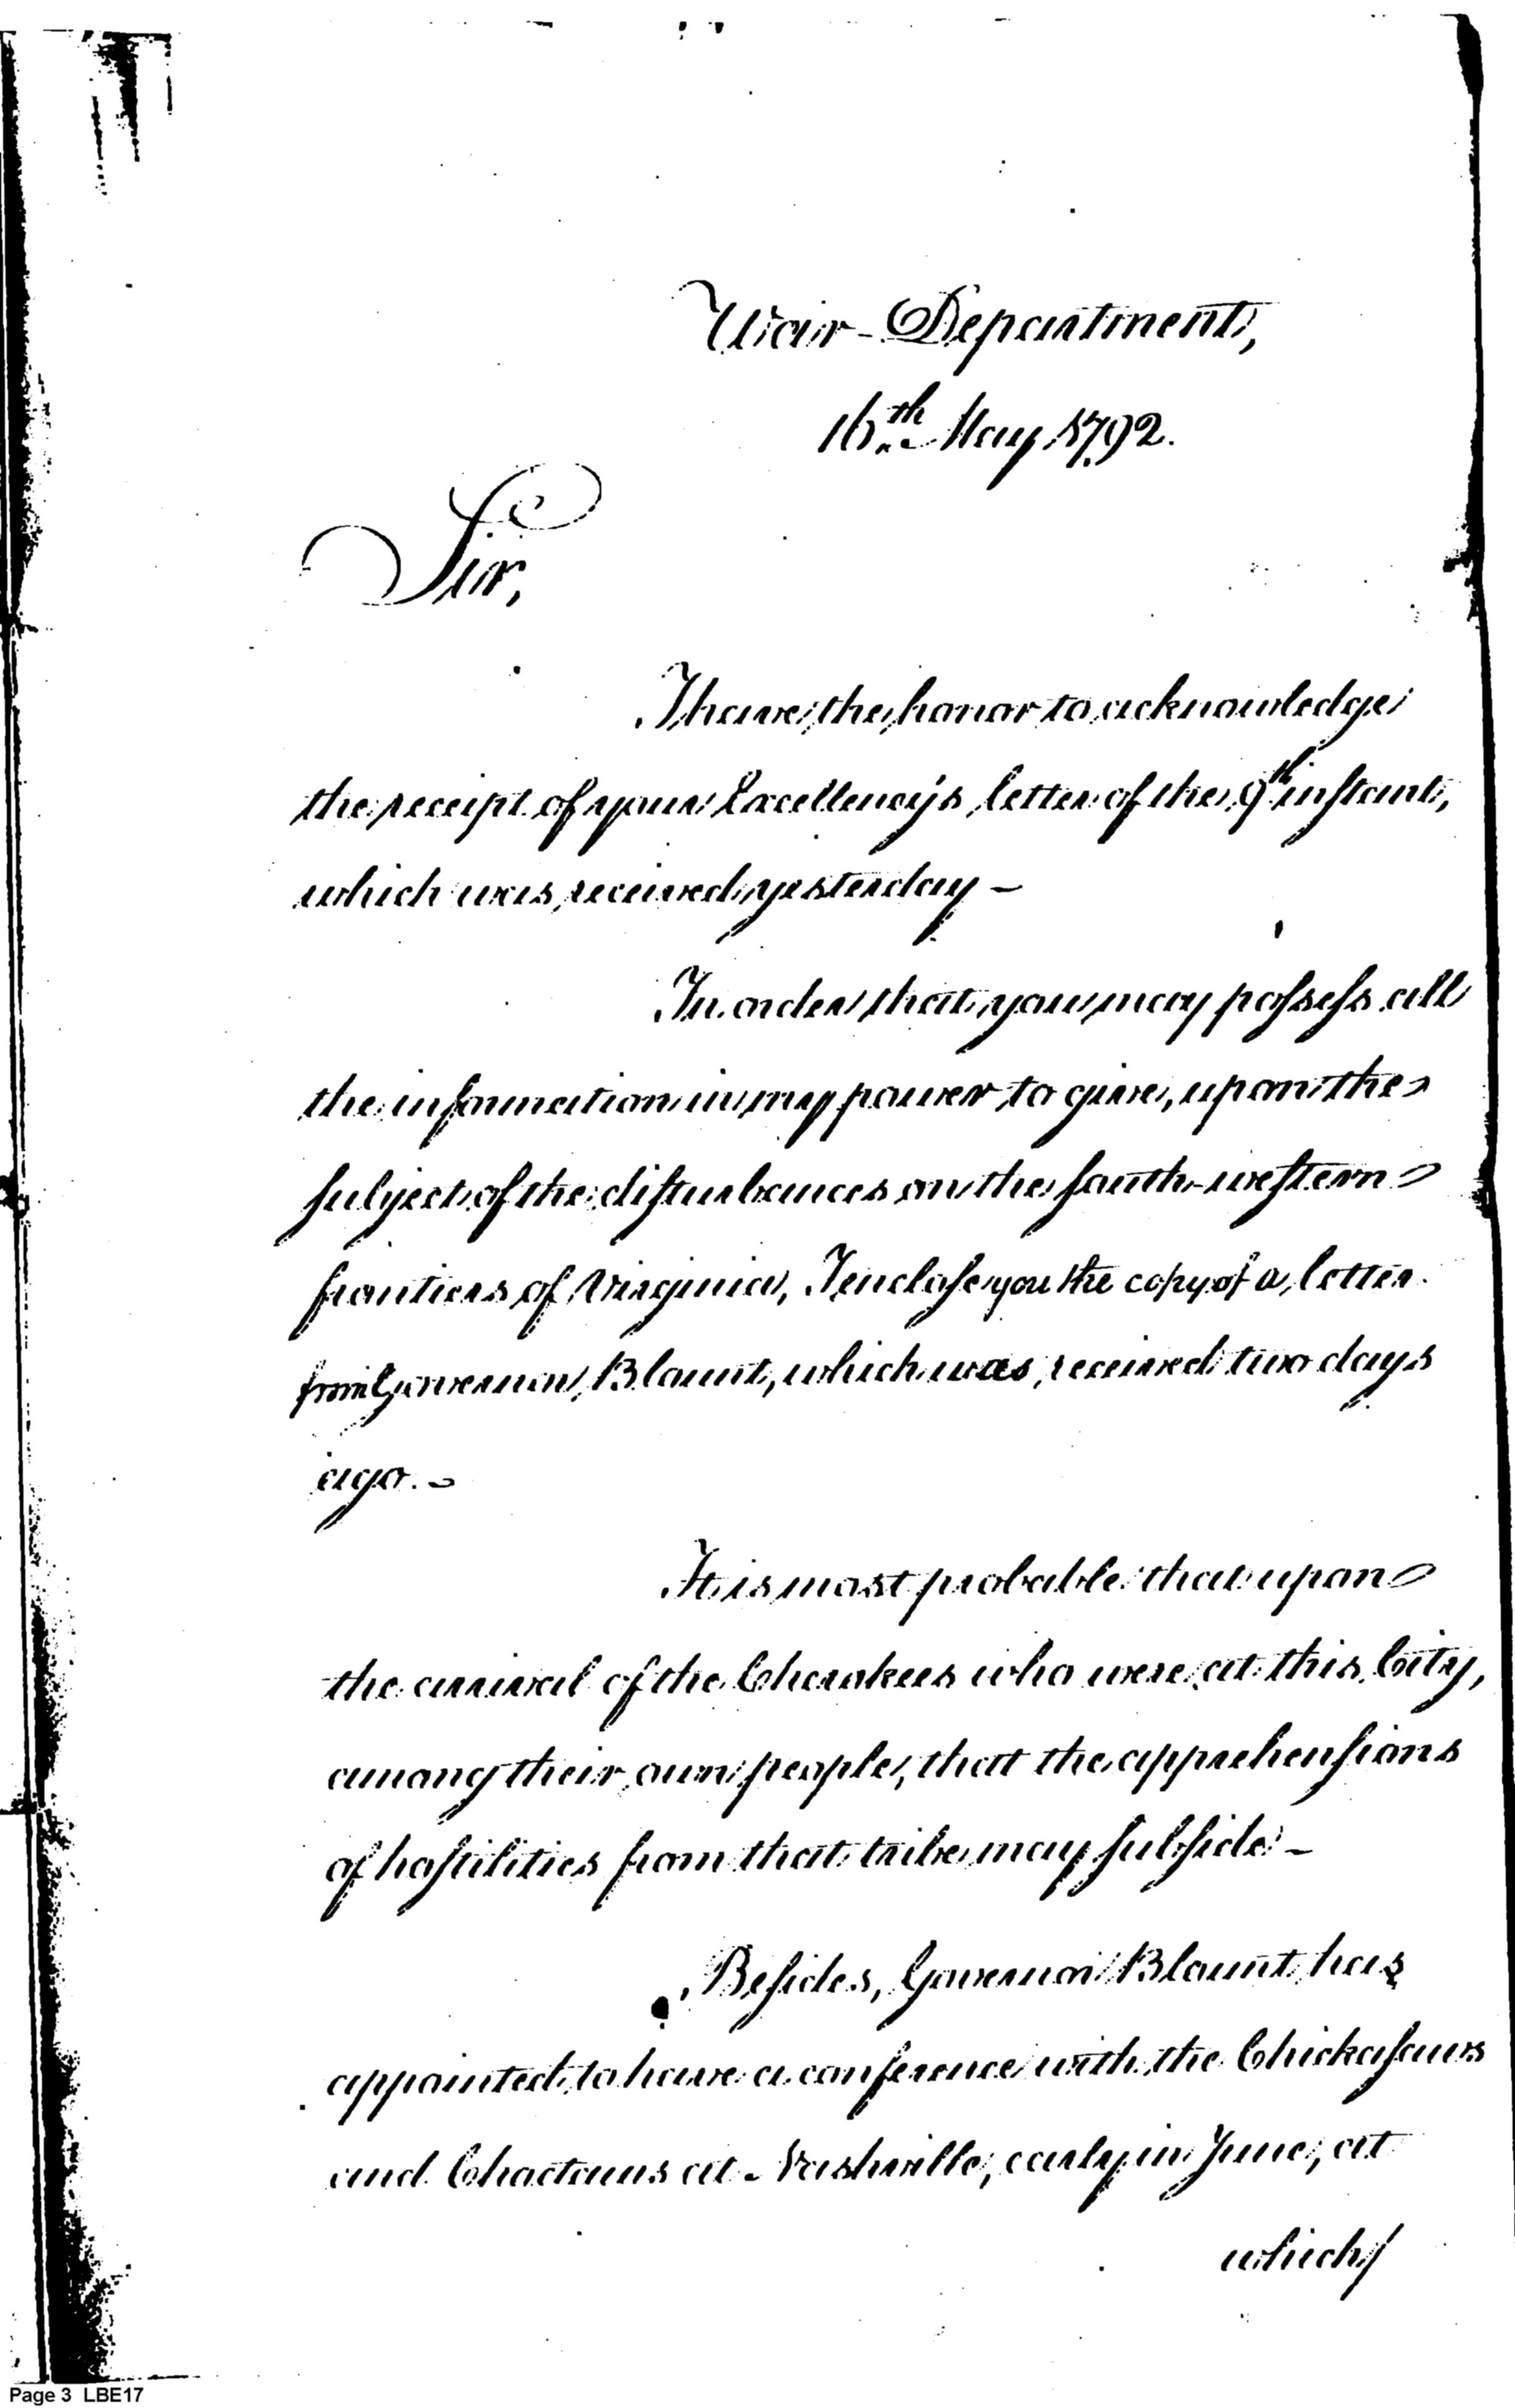 War-Department,
16th. May 1792.
Sir,
I have the honor to acknowledge
the receipt of your Excellency's letter of the 9th instant,
which was received yesterday –
In order that you may possess all
the information in my power to give, upon the
subject of the disturbances on the south-western
frontiers of Virginia, I enclose you the copy of a letter
from Governor Blount, which was received two days
ago. –
It is most probable that upon
the arrival of the Cherokees who were at this City,
among their own people, that the apprehensions
of hostilities from that tribe may subside –
Besides, Governor Blount has
appointed to have a conference with the Chickasaws
and Choctaws at Nashville, early in June, at
which/
Page 3 LBE17